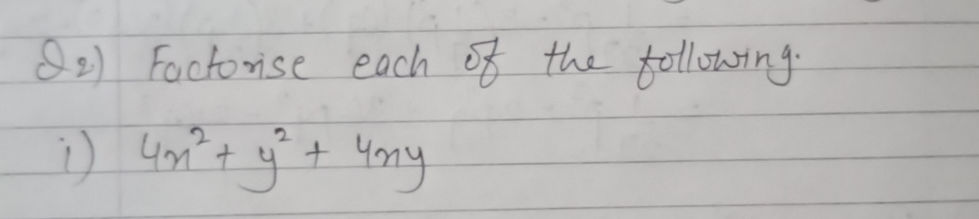 Q2) Factorise each of the following.
i) 4x² + y² + 4xy